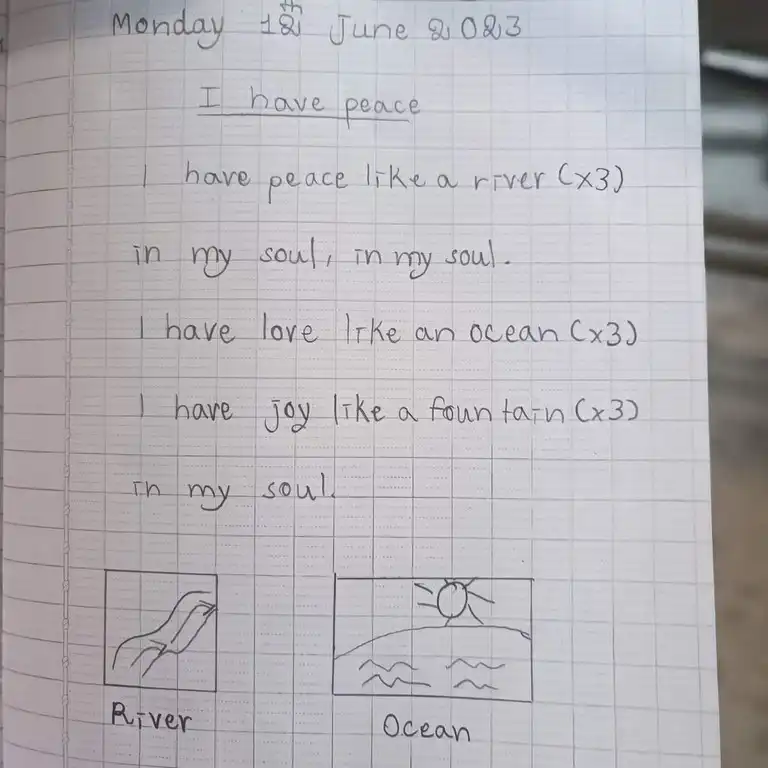 Monday 12th June 2023
I have peace
I have peace like a river (x3)
in my soul, in my soul.
I have love like an ocean (x3)
I have joy like a fountain (x3)
in my soul.
River
Ocean